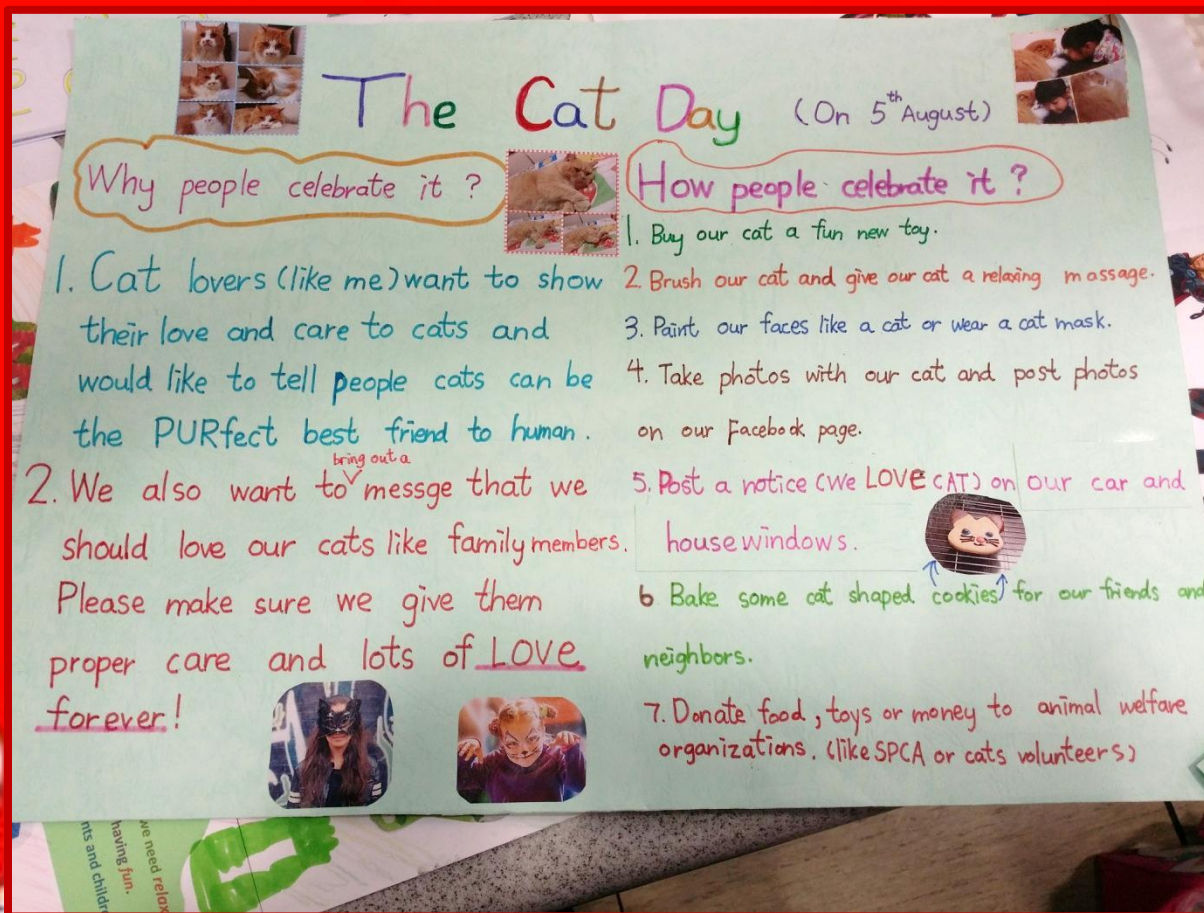 The Cat Day (On 5th August)
Why people celebrate it ?
1. Cat lovers (like me) want to show
their love and care to cats and
would like to tell people cats can be
the PURfect best friend to human.
2. We also want to bring out a messge that we
should love our cats like family members.
Please make sure we give them
proper care and lots of LOVE
forever!
How people celebrate it ?
1. Buy our cat a fun new toy.
2. Brush our cat and give our cat a relaxing massage.
3. Paint our faces like a cat or wear a cat mask.
4. Take photos with our cat and post photos
on our Facebook page.
5. Post a notice (We LOVE CAT) on our car and
house windows.
6 Bake some cat shaped cookies for our friends and
neighbors.
7. Donate food, toys or money to animal welfare
organizations. (like SPCA or cats volunteers)
we need relax
having fun.
nts and childr